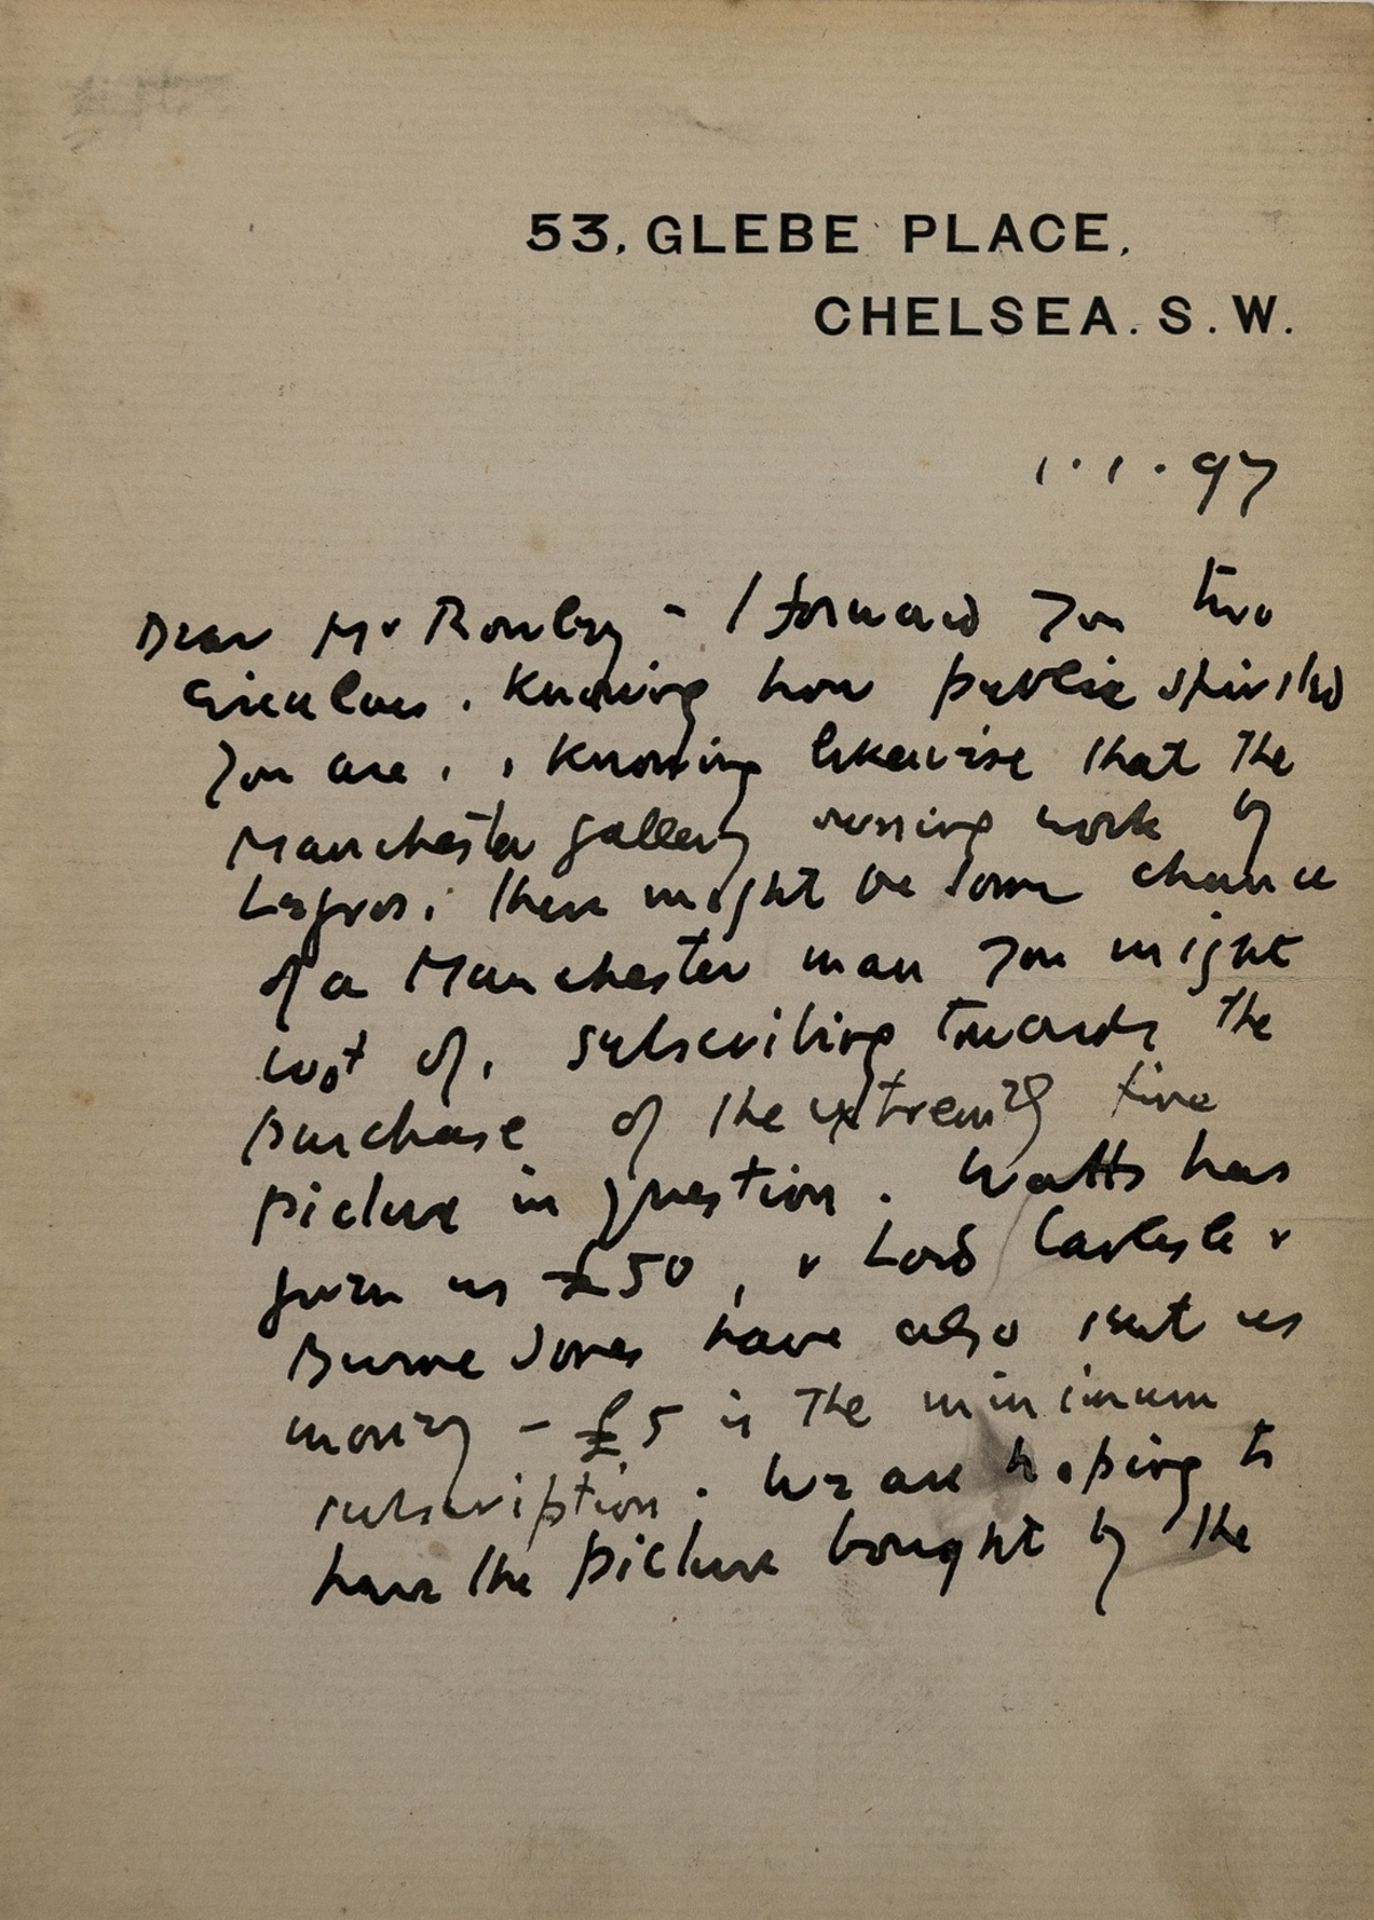 53, GLEBE PLACE,
CHELSEA. S. W.
1.1.97
Dear Mr Rowley - I forward you two
circulars. Knowing how public spirited
you are, & knowing likewise that the
Manchester gallery owning work by
Legros; there might be some chance
of a Manchester man you might
wot of, subscribing towards the
purchase of the extremely fine
picture in question. Watts has
given us £50, & Lord Carlisle &
Burne Jones have also sent us
money - £5 is the minimum
subscription. We are hoping to
have the picture bought by the